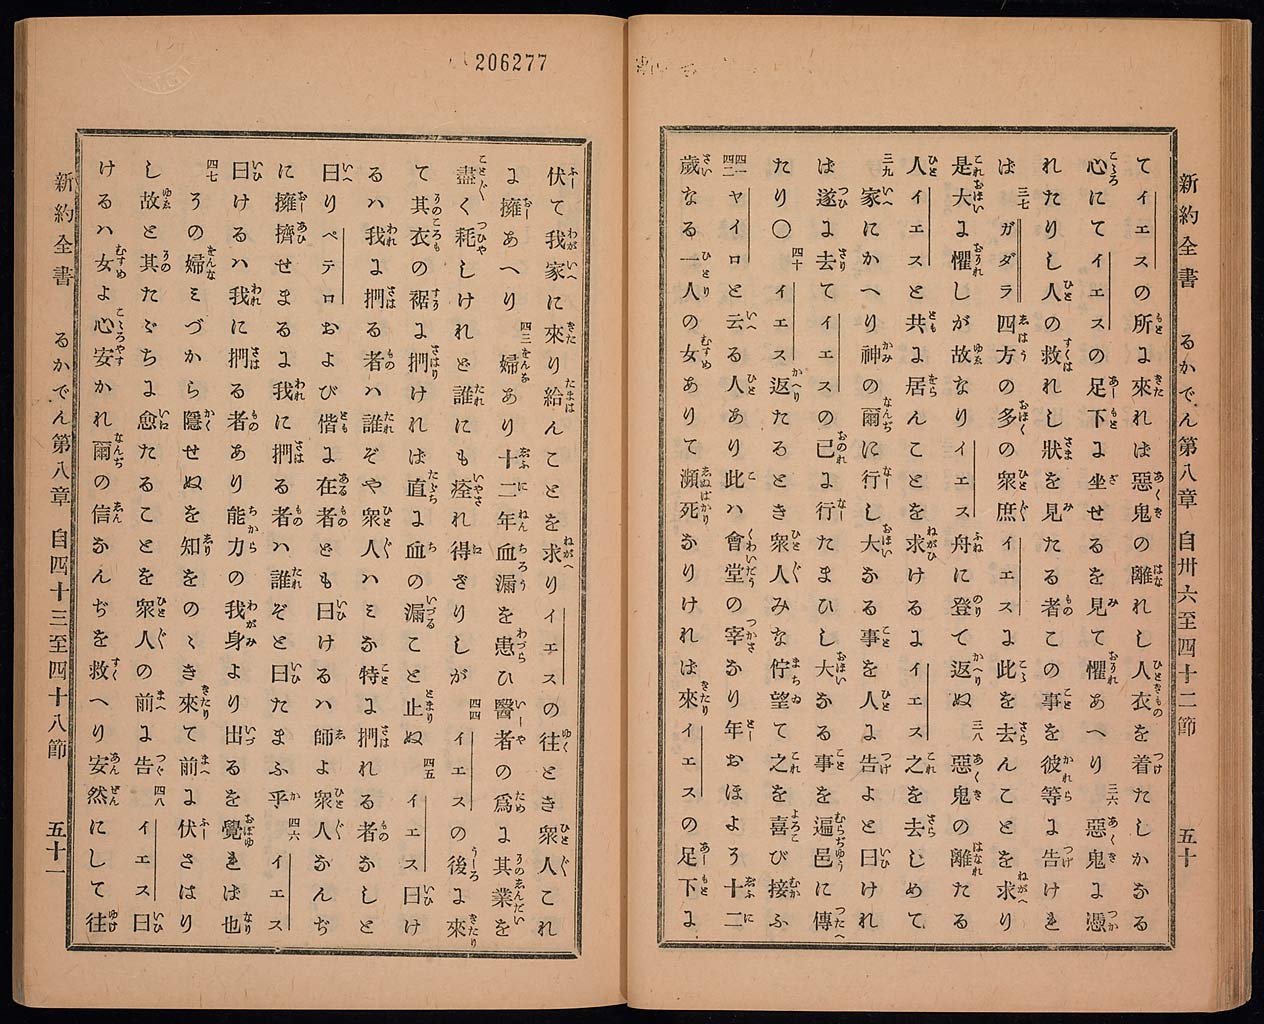 新約全書　るかでん第八章　自卅六至四十二節　五十
てイエスの所に來れは惡鬼の離れし人衣を着たしかなる
心にてイエスの足下に坐せるを見て懼あへり三六惡鬼に憑
れたりし人の救れし狀を見たる者この事を彼等に告けれ
ば三七ガダラ四方の多の衆庶イエスに此を去んことを求り
是大に懼しが故なりイエス舟に登て返ぬ三八惡鬼の離たる
人イエスと共に居んことを求けるにイエス之を去しめて
三九家にかへり神の爾に行し大なる事を人に告よと曰けれ
ば遂に去てイエスの己に行たまひし大なる事を遍邑に傳
たり〇四十イエス返たるとき衆人みな佇望て之を喜び接ふ
四一四二ヤイロと云る人あり此ハ會堂の宰なり年おほよろ十二
歲なる一人の女ありて瀕死なりけれは來イエスの足下に
206277
伏て我家に來り給んことを求りイエスの往とき衆人これ
に擁あへり四三婦あり十二年血漏を患ひ醫者の爲に其業を
盡く耗しけれと誰にも痊れ得ざりしが四四イエスの後に來
て其衣の裾に捫けれは直に血の漏こと止ぬ四五イエス曰け
るハ我に捫る者ハ誰ぞや衆人ハミな特に捫れる者なしと
曰りペテロおよび偕に在者ども曰けるハ師よ衆人なんぢ
に擁擠せまるに我に捫る者ハ誰ぞと曰たまふ乎四六イエス
曰けるハ我に捫る者あり能力の我身より出るを覺れば也
四七うの婦ミづから隱せぬを知をのゝき來て前に伏さはり
し故と其たゞちに愈たることを衆人の前に告四八イエス曰
けるハ女よ心安かれ爾の信なんぢを救へり安然にして往
新約全書　るかでん第八章　自四十三至四十八節　五十一